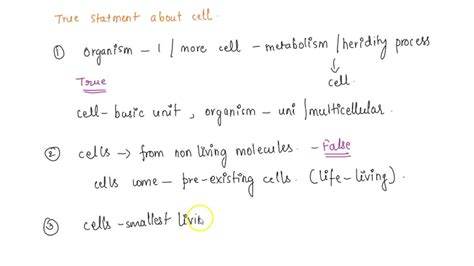 True Statment about cell.
① Organism – 1 / more cell – metabolism / heridity process
True
cell.
cell– basic unit, organism – uni / multicellular.
② cells → from non living molecules. – False
cells come – pre-existing cells. (life – living).
③ cells – smallest livin